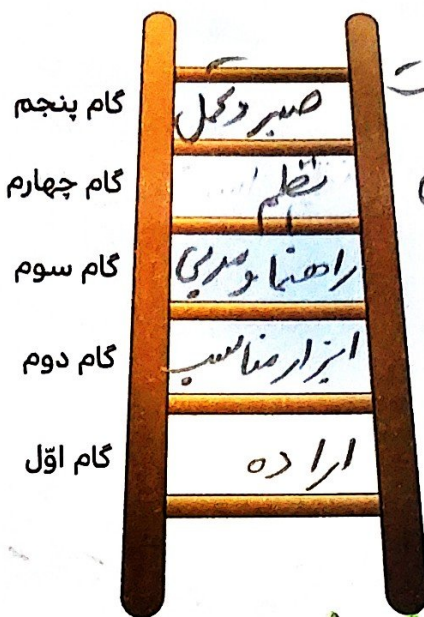 گام پنجم صبر و تحمل
گام چهارم نظم
گام سوم راهنما و مربی
گام دوم ابزار مناسب
گام اوّل اراده